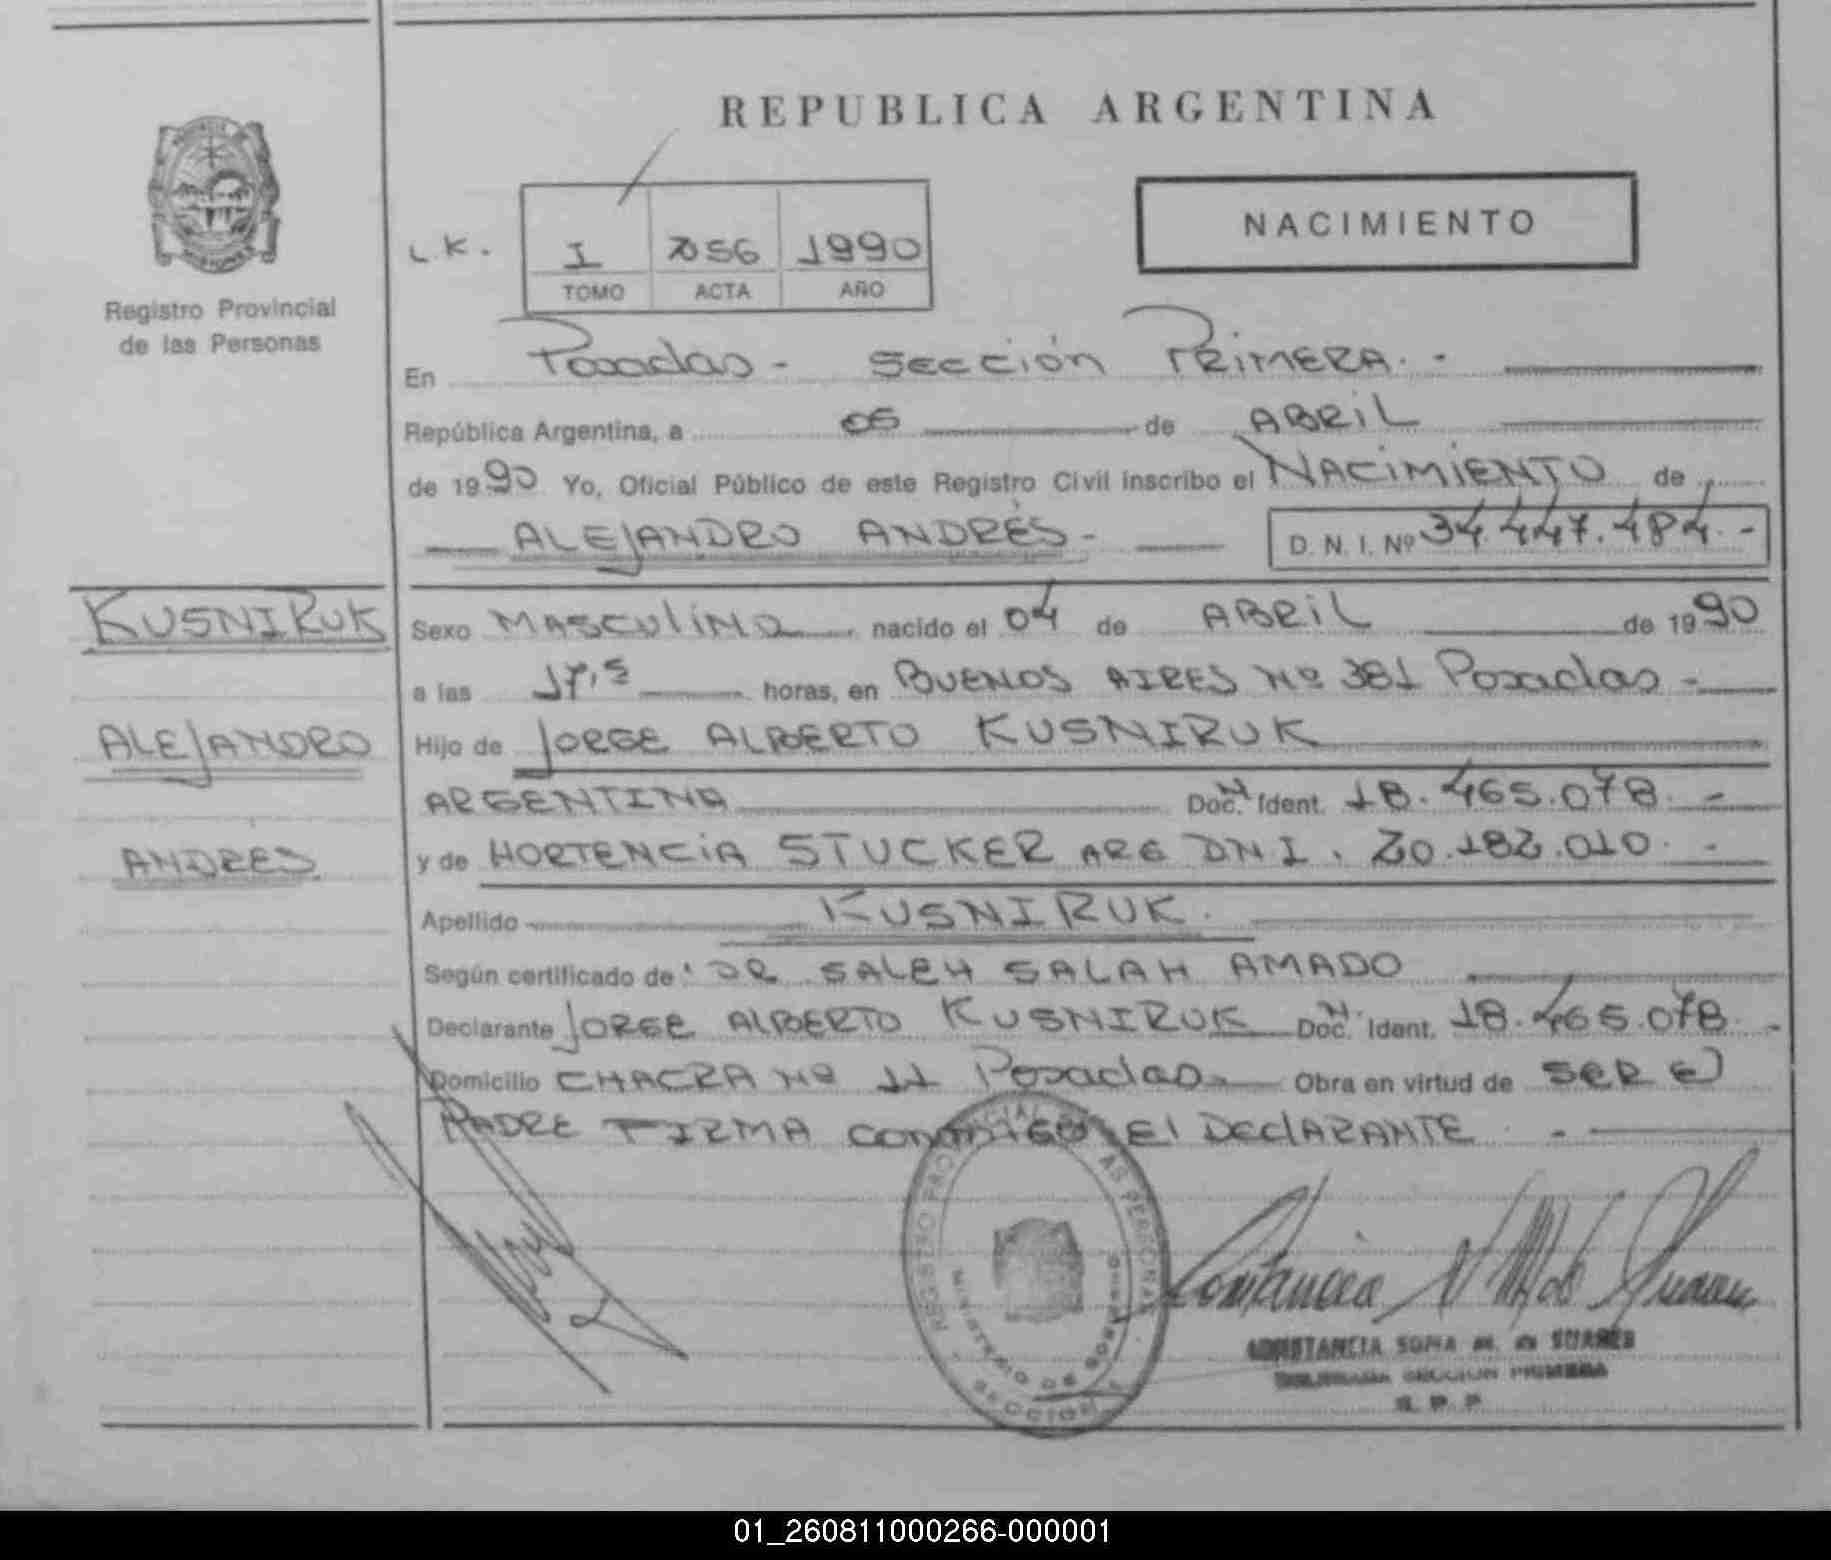 REPUBLICA ARGENTINA
NACIMIENTO
L.K. I 1990
TOMO ACTA AÑO
Registro Provincial
de las Personas
En Posadas - Sección PRIMERA. -
República Argentina, a 05 de ABRIL
de 1990 Yo, Oficial Público de este Registro Civil inscribo el NACIMIENTO de
ALEJANDRO ANDRÉS - D. N. I. Nº 34.447.484. -
KUSNIRUK
ALEJANDRO
ANDRES
Sexo MASCULINO nacido el 04 de ABRIL de 1990
a las 17,5 horas, en BUENOS AIRES Nº 381 Posadas -
Hijo de JORGE ALBERTO KUSNIRUK
ARGENTINA Doc. Ident. 18.465.078. -
y de HORTENCIA STUCKER ARG DNI. 20.182.010. -
Apellido KUSNIRUK.
Según certificado de: DR SALEH SALAH AMADO
Declarante JORGE ALBERTO KUSNIRUK Doc. Ident. 18.465.078. -
Domicilio CHACRA Nº 11 Posadas Obra en virtud de SER El
PADRE FIRMA conmigo El DEClARANTE. -
REGISTRO PROVINCIAL DE LAS PERSONAS
MINISTERIO DE GOBIERNO
SECCION
CONSTANCIA SOFIA M. de SUAREZ
SECCION PRIMERA
R. P. P.
01_260811000266-000001